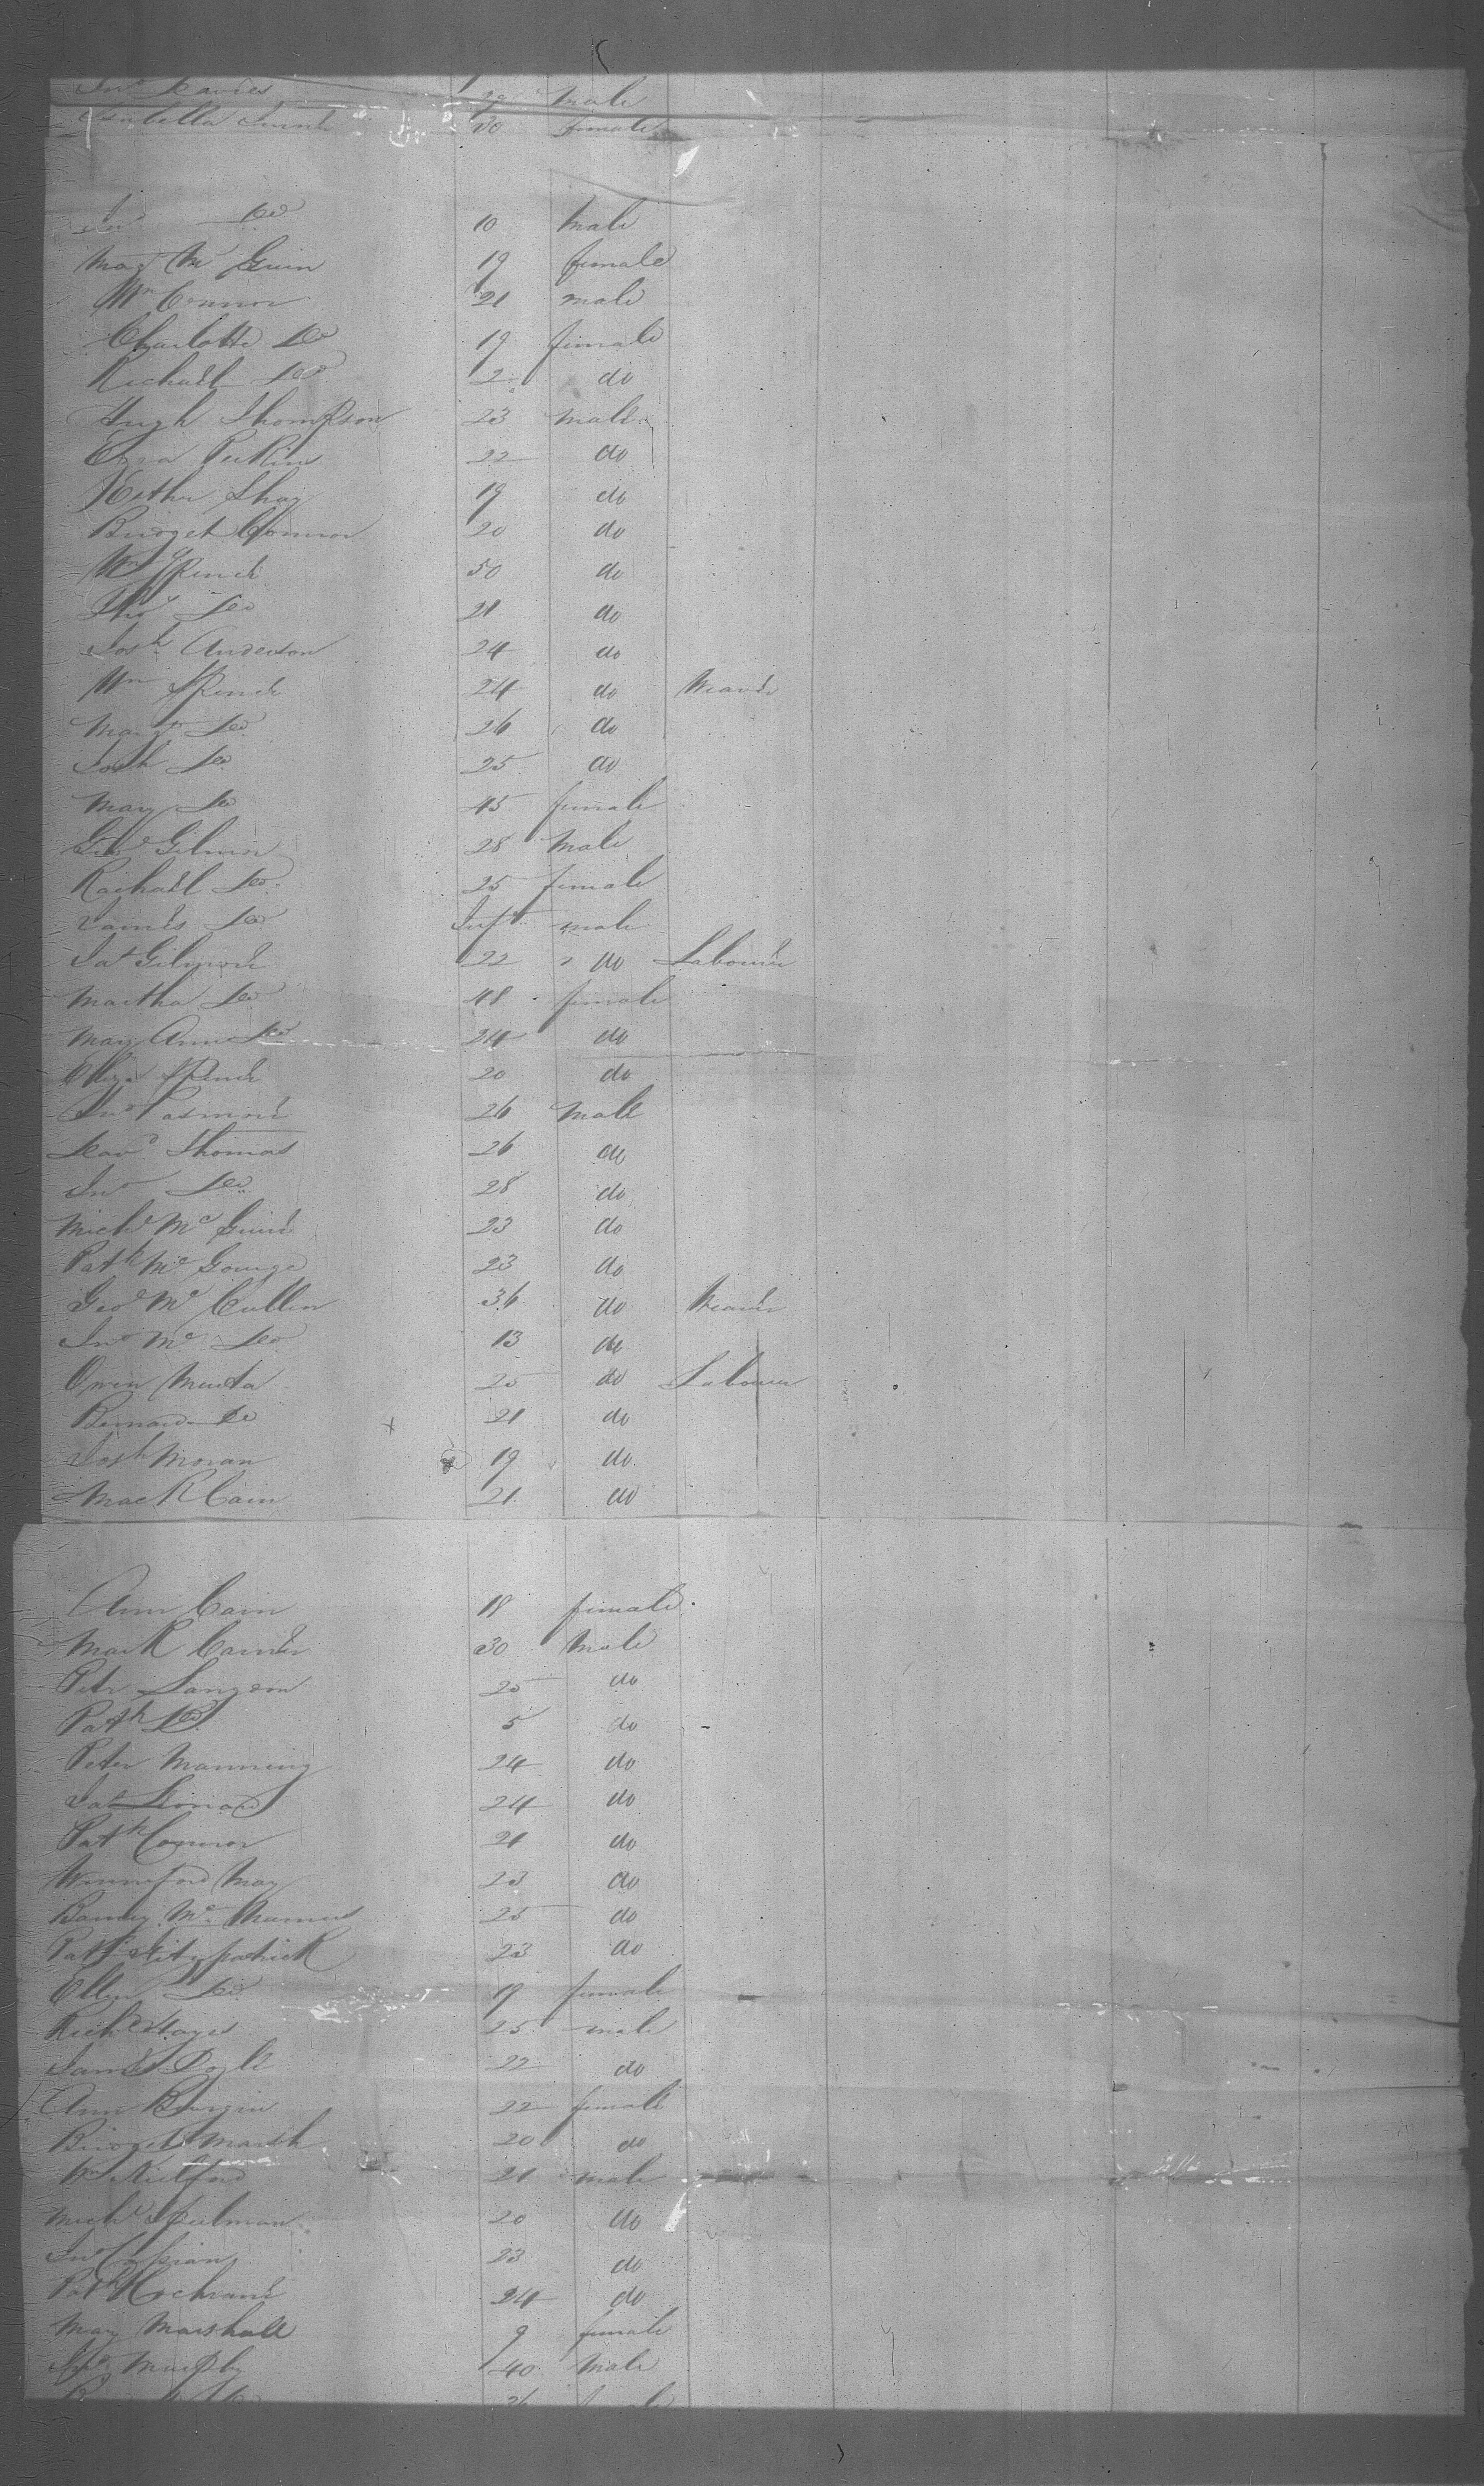 Jno Davies 29 male
Isabella 20 female
Jno Do 10 male
Mag Mc Guin 19 female
Wm Connor 21 male
Charlotte Do 19 female
Richall Do 2 do
Hugh Thompson 23 male
Ezra Perkins 22 do
Kethr Shay 19 do
Bridget Connor 20 do
Wm Spence 50 do
Thos Do 21 do
Josh Anderson 24 do
Wm Spence 24 do Weaver
Margt Do 26 do
Josh Do 25 do
Mary Do 45 female
Geo Gilmor 28 Male
Rachall Do 25 female
James Do Inft male
Jas Gilmore 22 do Labourer
Martha Do 48 female
Mary Ann Do 24 do
Eliza Spence 20 do
Jno Pasmore 26 Male
Davd Thomas 26 do
Jno Do 28 do
Michl Mc Guire 23 do
Patk Mc Gounge 23 do
Geo Mc Cullen 36 do Weaver
Jno Mc Do 13 do
Owen Murta 25 do Labourer
Bernard Do 21 do
Josh Moran 19 do
Mack Cain 21 do
Ann Cain 18 female
Mark Carrier 30 Male
Petr Langdon 25 do
Patk Do 5 do
Peter Manning 24 do
Jas Leonard 24 do
Patk Connor 21 do
Winneford May 23 do
Barney Mc Manus 25 do
Patk Fitzpatrick 23 do
Ellen Do 19 female
Richd Hayes 25 male
James Doyle 22 do
Ann Burgin 22 female
Bridget Marsh 20 do
Wm 21 male
Michl Spelman 20 do
Jno 23 do
Patk Cochrane 24 do
Mary Marshall 9 female
Jno Murphy 40 Male